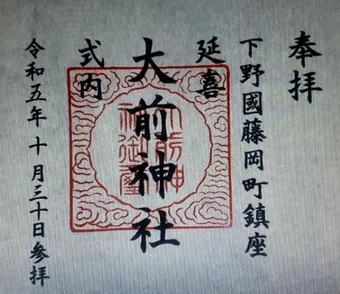 奉拝
下野國藤岡町鎮座
延喜
式内
大前神社
令和五年十月三十日参拝